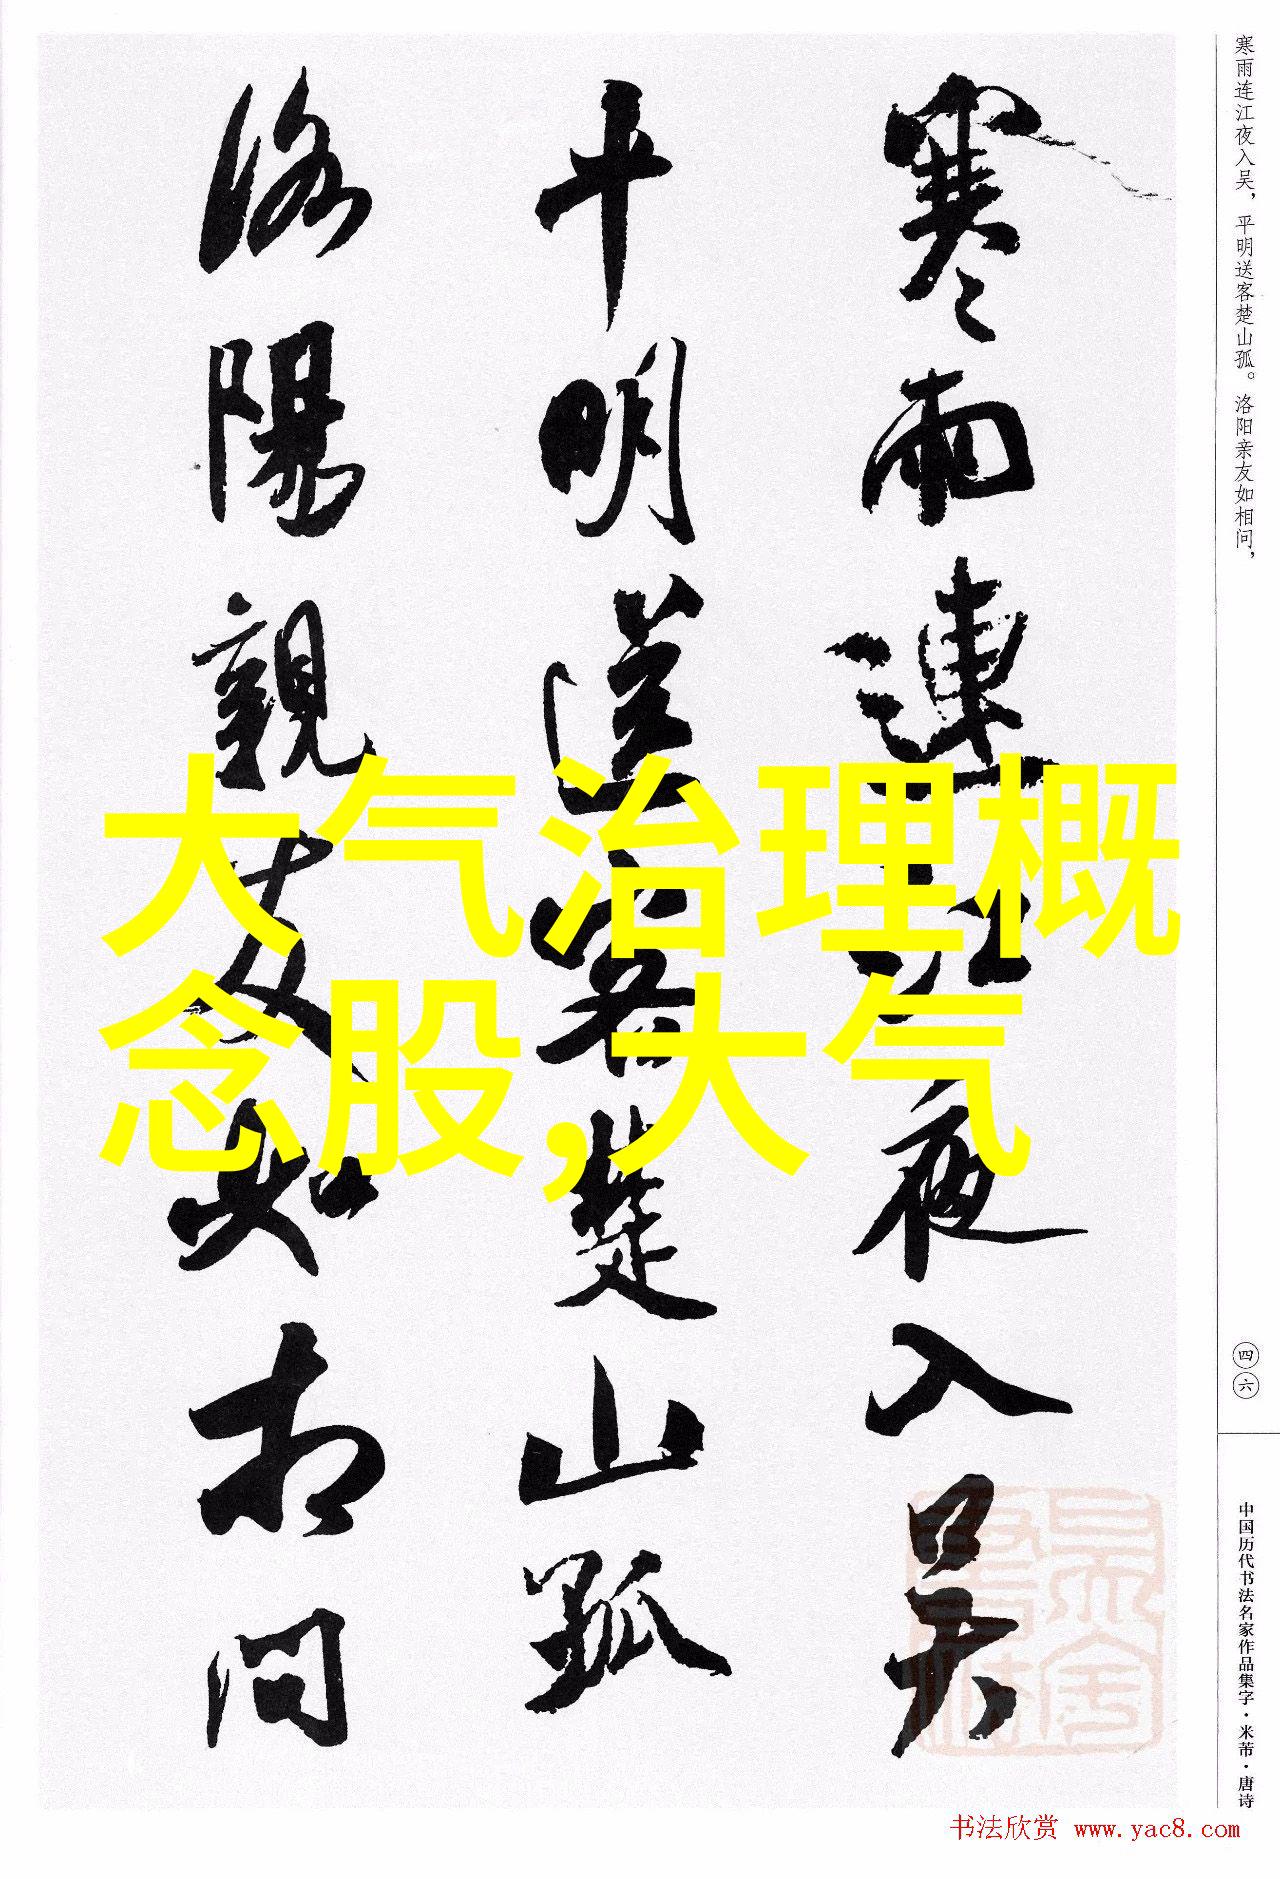 寒雨連江夜入吴
平明送客楚山孤
洛陽親友如相问
大气治理概
念股,大气
寒雨连江夜入吴，平明送客楚山孤。洛阳亲友如相问，
四六
中国历代书法名家作品集字·米芾·唐诗
书法欣赏 www.yac8.com